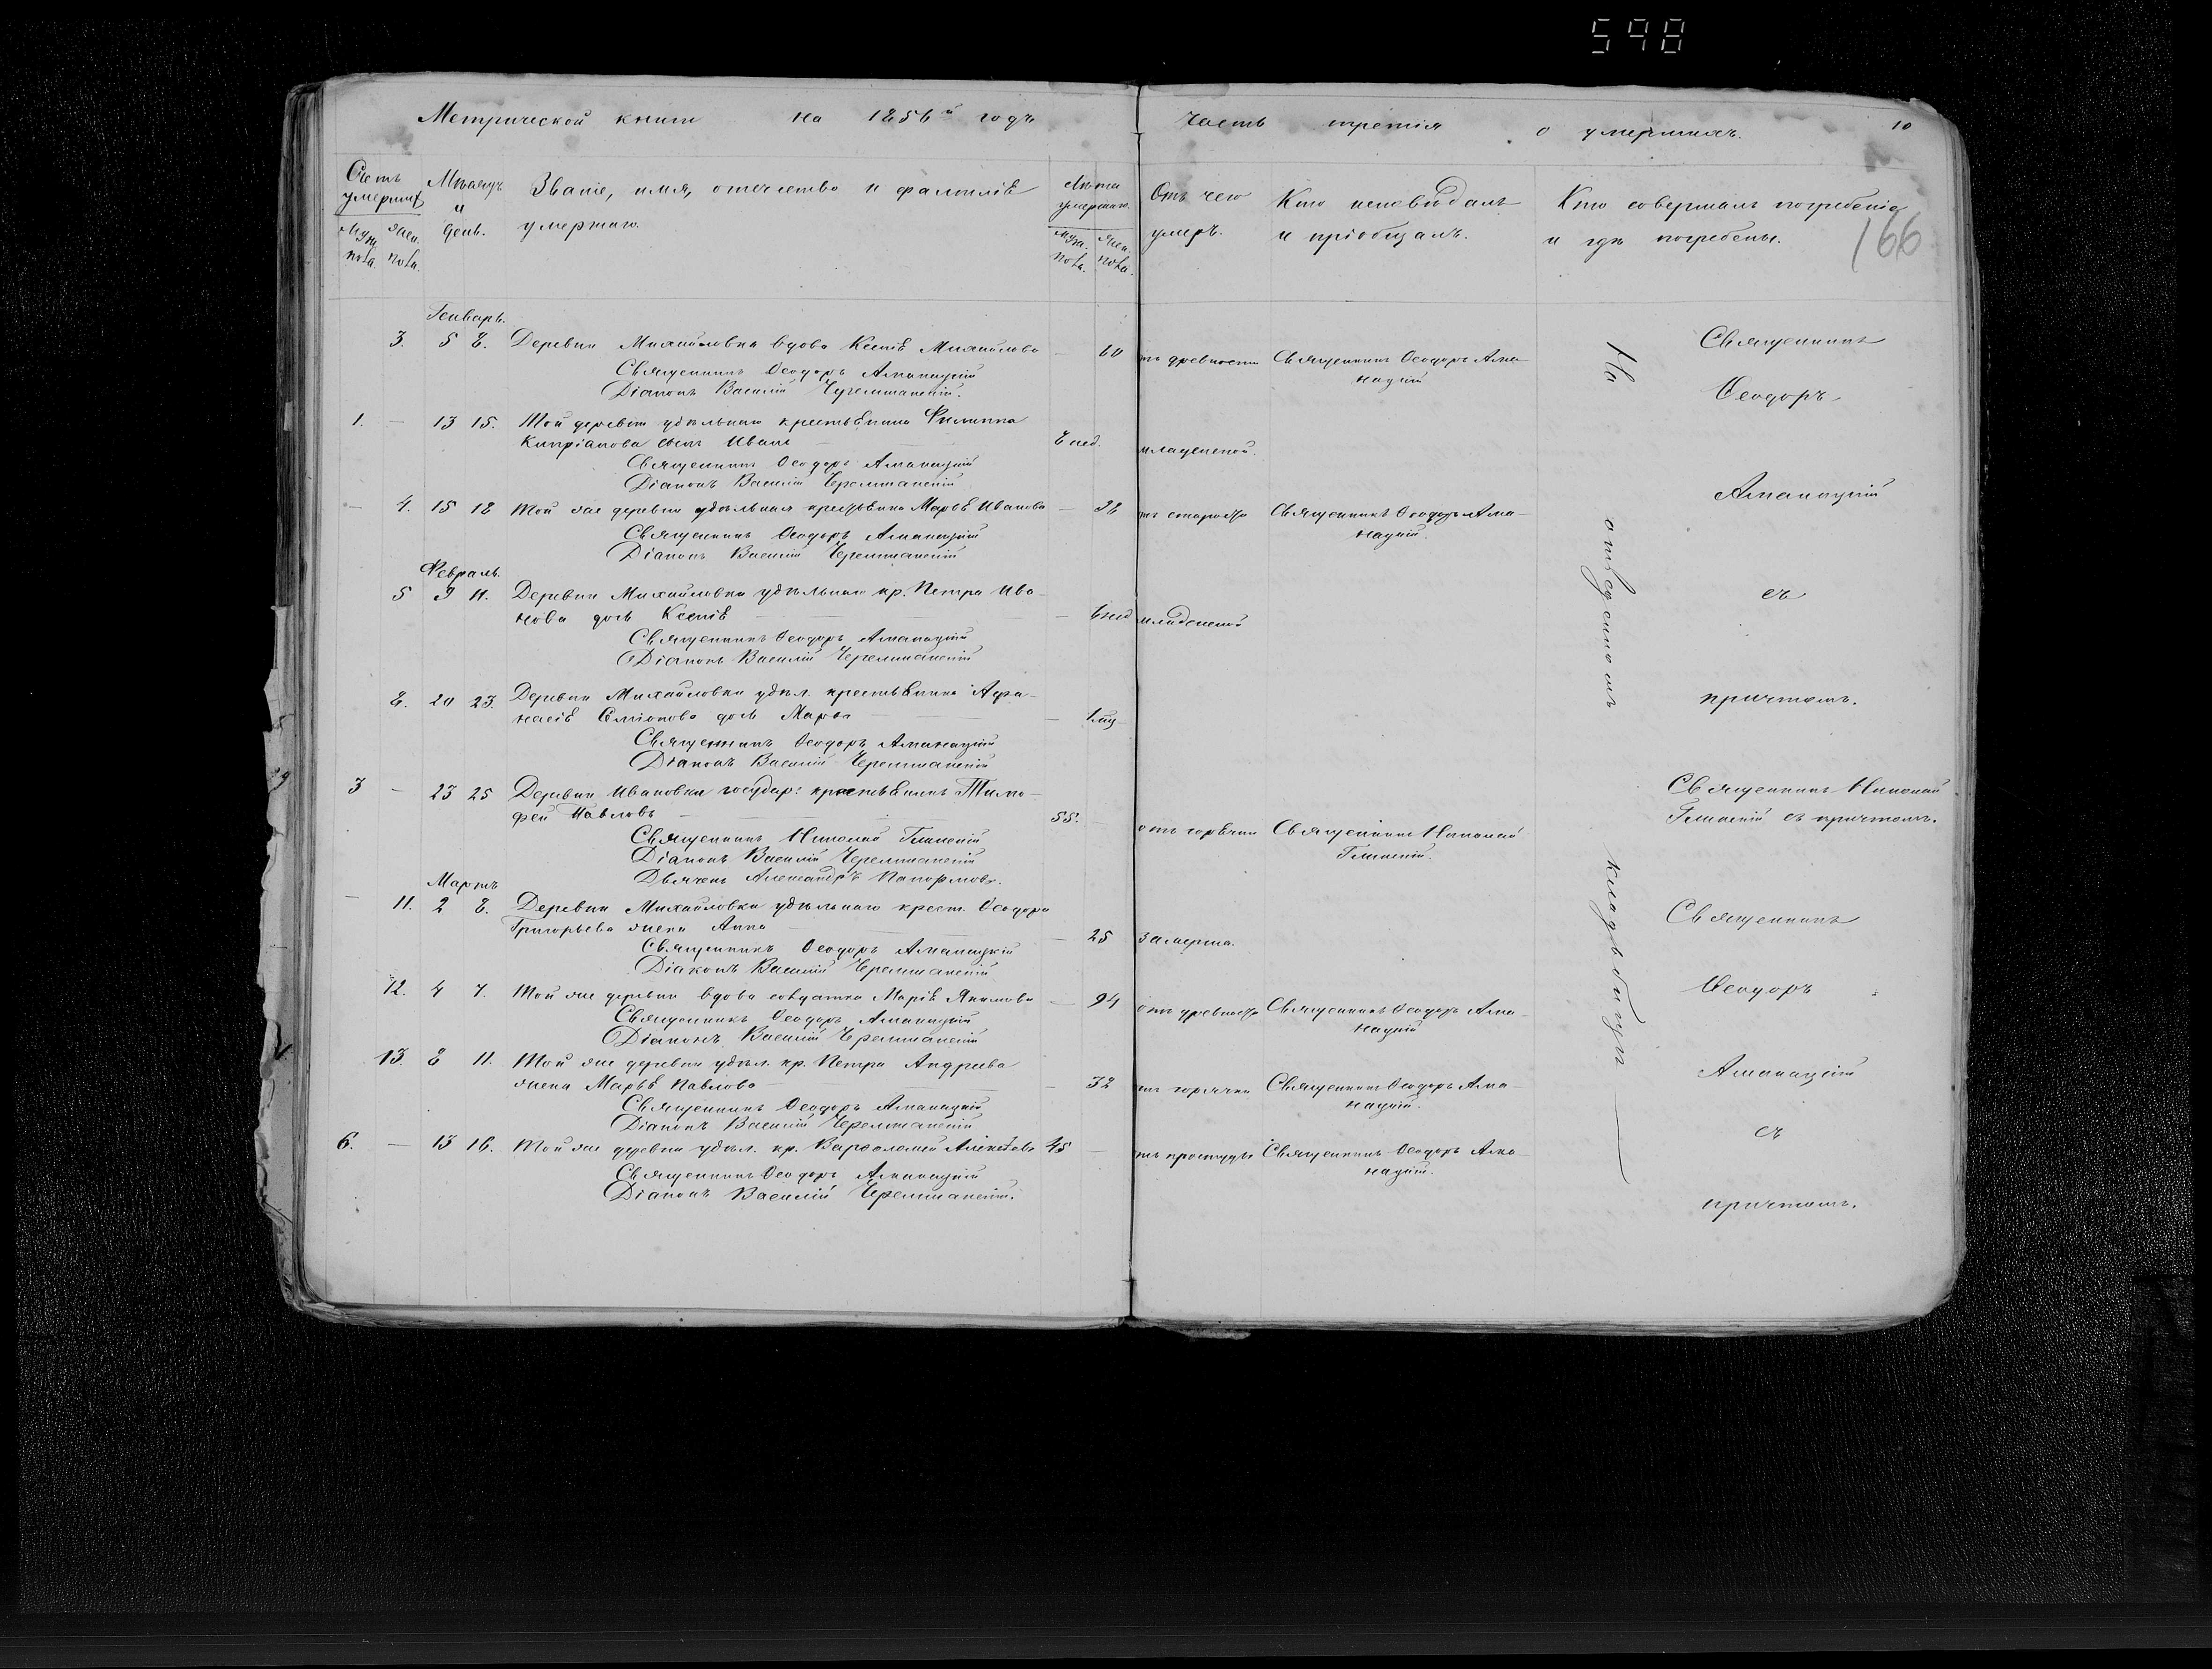 598
Метрической книги на 1856й годъ
часть третія о умершихъ. 10
166
Счетъ умершихъ
Муж. пола. Жен. пола.
Мѣсяцъ и день.
Званіе, имя, отечество и фамилія
умершаго.
Лѣта умершаго.
Муж. пола. Жен. пола.
Отъ чего
умеръ.
Кто исповѣдалъ
и пріобщалъ.
Кто совершалъ погребеніе
и гдѣ погребены.
Генварь.
3. 5 8. Деревни Михайловки вдова Ксенія Михайлова — 60 отъ древности Священникъ Ѳеодоръ Ама-
нацкій
Священникъ Ѳеодоръ Аманацкій
Діаконъ Василій Черемшанскій.
1. — 13 15. Той деревни удѣльнаго крестьянина Филиппа
Кипріанова сынъ Иванъ — 8 нед. младенской.
Священникъ Ѳеодоръ Аманацкій
Діаконъ Василій Черемшанскій
— 4. 15 18 Той же деревни удѣльная крестьянка Марья Иванова — 38 отъ Священникъ Ѳеодоръ Ама-
нацкій.
Священникъ Ѳеодоръ Аманацкій
Діаконъ Василій Черемшанскій
Февраль.
5 9 11. Деревни Михайловки удѣльнаго кр. Петра Ива-
нова дочь Ксенія — 6 нед младенской
Священникъ Ѳеодоръ Аманацкій
Діаконъ Василій Черемшанскій
8. 20 23. Деревни Михайловки удѣл. крестьянина Афа-
насія дочь Марѳа —
Священникъ Ѳеодоръ Аманацкій
Діаконъ Василій Черемшанскій
3 — 23 25 Деревни Ивановки государ: крестьянинъ Тимо-
фей Павловъ — 55. — отъ горячки Священникъ Николай
Глинскій.
Священникъ Николай Глинскій
Діаконъ Василій Черемшанскій
Дьячекъ Александръ
Мартъ
— 11. 2 8. Деревни Михайловки удѣльнаго крест. Ѳеодора
Григорьева жена Анна — 25
Священникъ Ѳеодоръ Аманацкій
Діаконъ Василій Черемшанскій
12. 4 7. Той же деревни вдова солдатка Марія Якимова — 94 отъ древности Священникъ Ѳеодоръ Ама-
нацкій
Священникъ Ѳеодоръ Аманацкій
Діаконъ Василій Черемшанскій
13. 8 11. Той же деревни удѣл. кр. Петра Андреева
жена Марья Павлова — 32 отъ горячки Священникъ Ѳеодоръ Ама-
нацкій.
Священникъ Ѳеодоръ Аманацкій
Діаконъ Василій Черемшанскій
6. — 13 16. Той же деревни удѣл. кр. Варѳоломей Алексѣевъ 45 — отъ простуды Священникъ Ѳеодоръ Ама-
нацкій.
Священникъ Ѳеодоръ Аманацкій
Діаконъ Василій Черемшанскій.
На отведенномъ кладьбищѣ —
Священникъ
Ѳеодоръ
Аманацкій
съ
причтомъ.
Священникъ Николай
Глинскій съ причтомъ.
Священникъ
Ѳеодоръ
Аманацкій
съ
причтомъ.